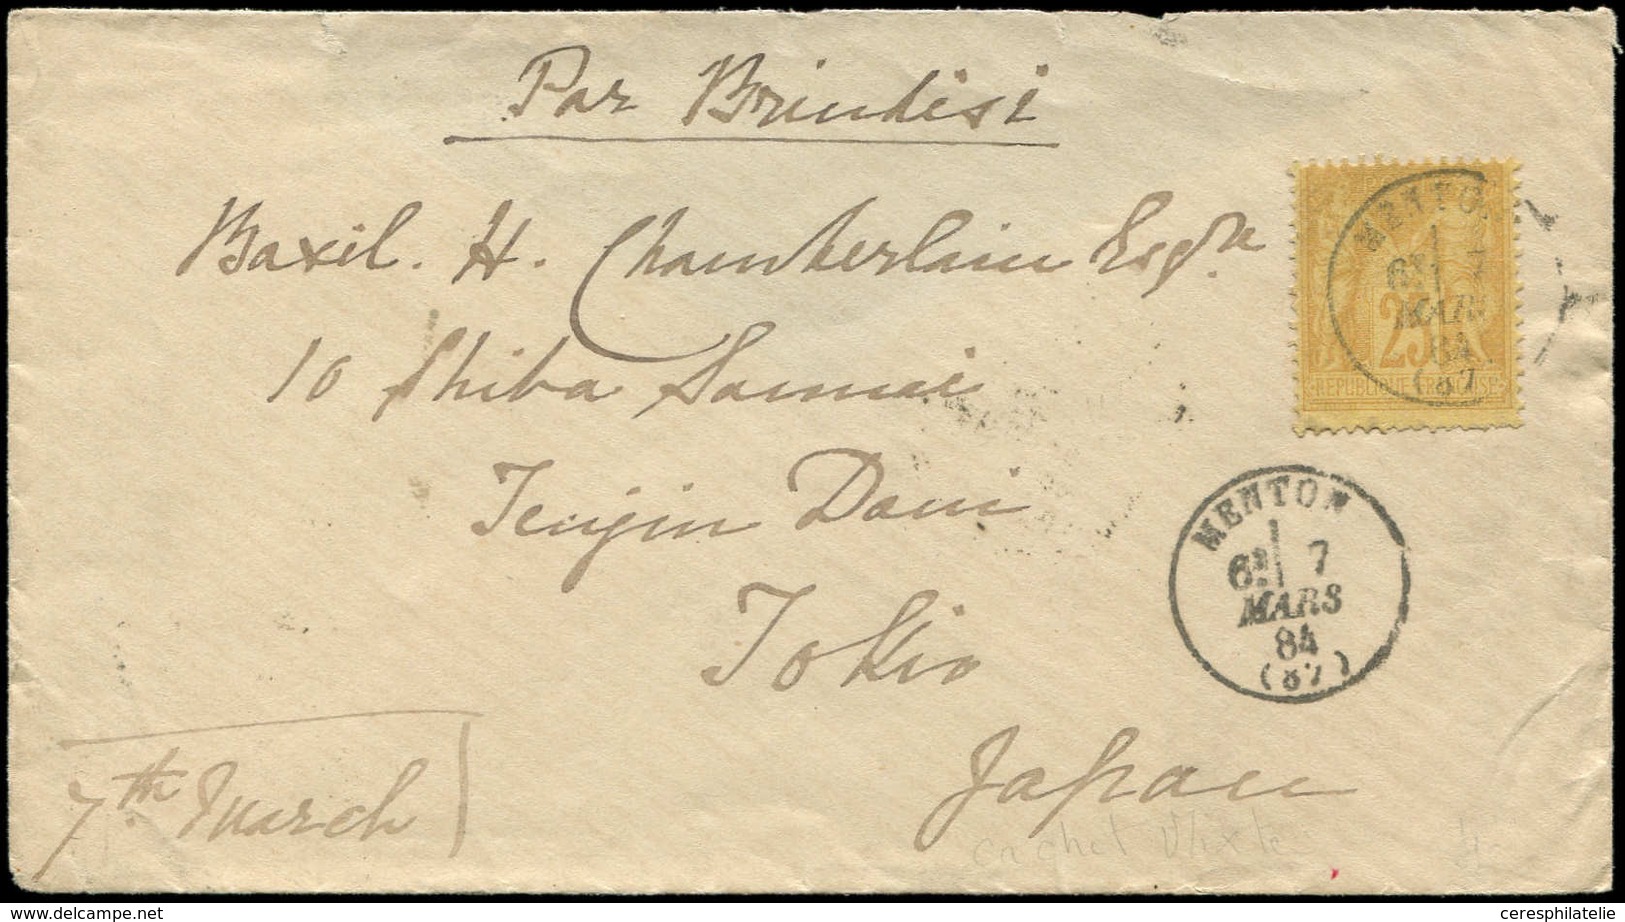 Par Brindisi
Basil. H. Chamberlain Esqre
10 Shiba Sannai
Tenjin Dani
Tokio
Japan
7th March
MENTON
6E 7
MARS
84
(87
25
REPUBLIQUE FRANÇAISE
MENTON
6E 7
MARS
84
(87)
cachet Mixte
www.delcampe.net
ceresphilatelie